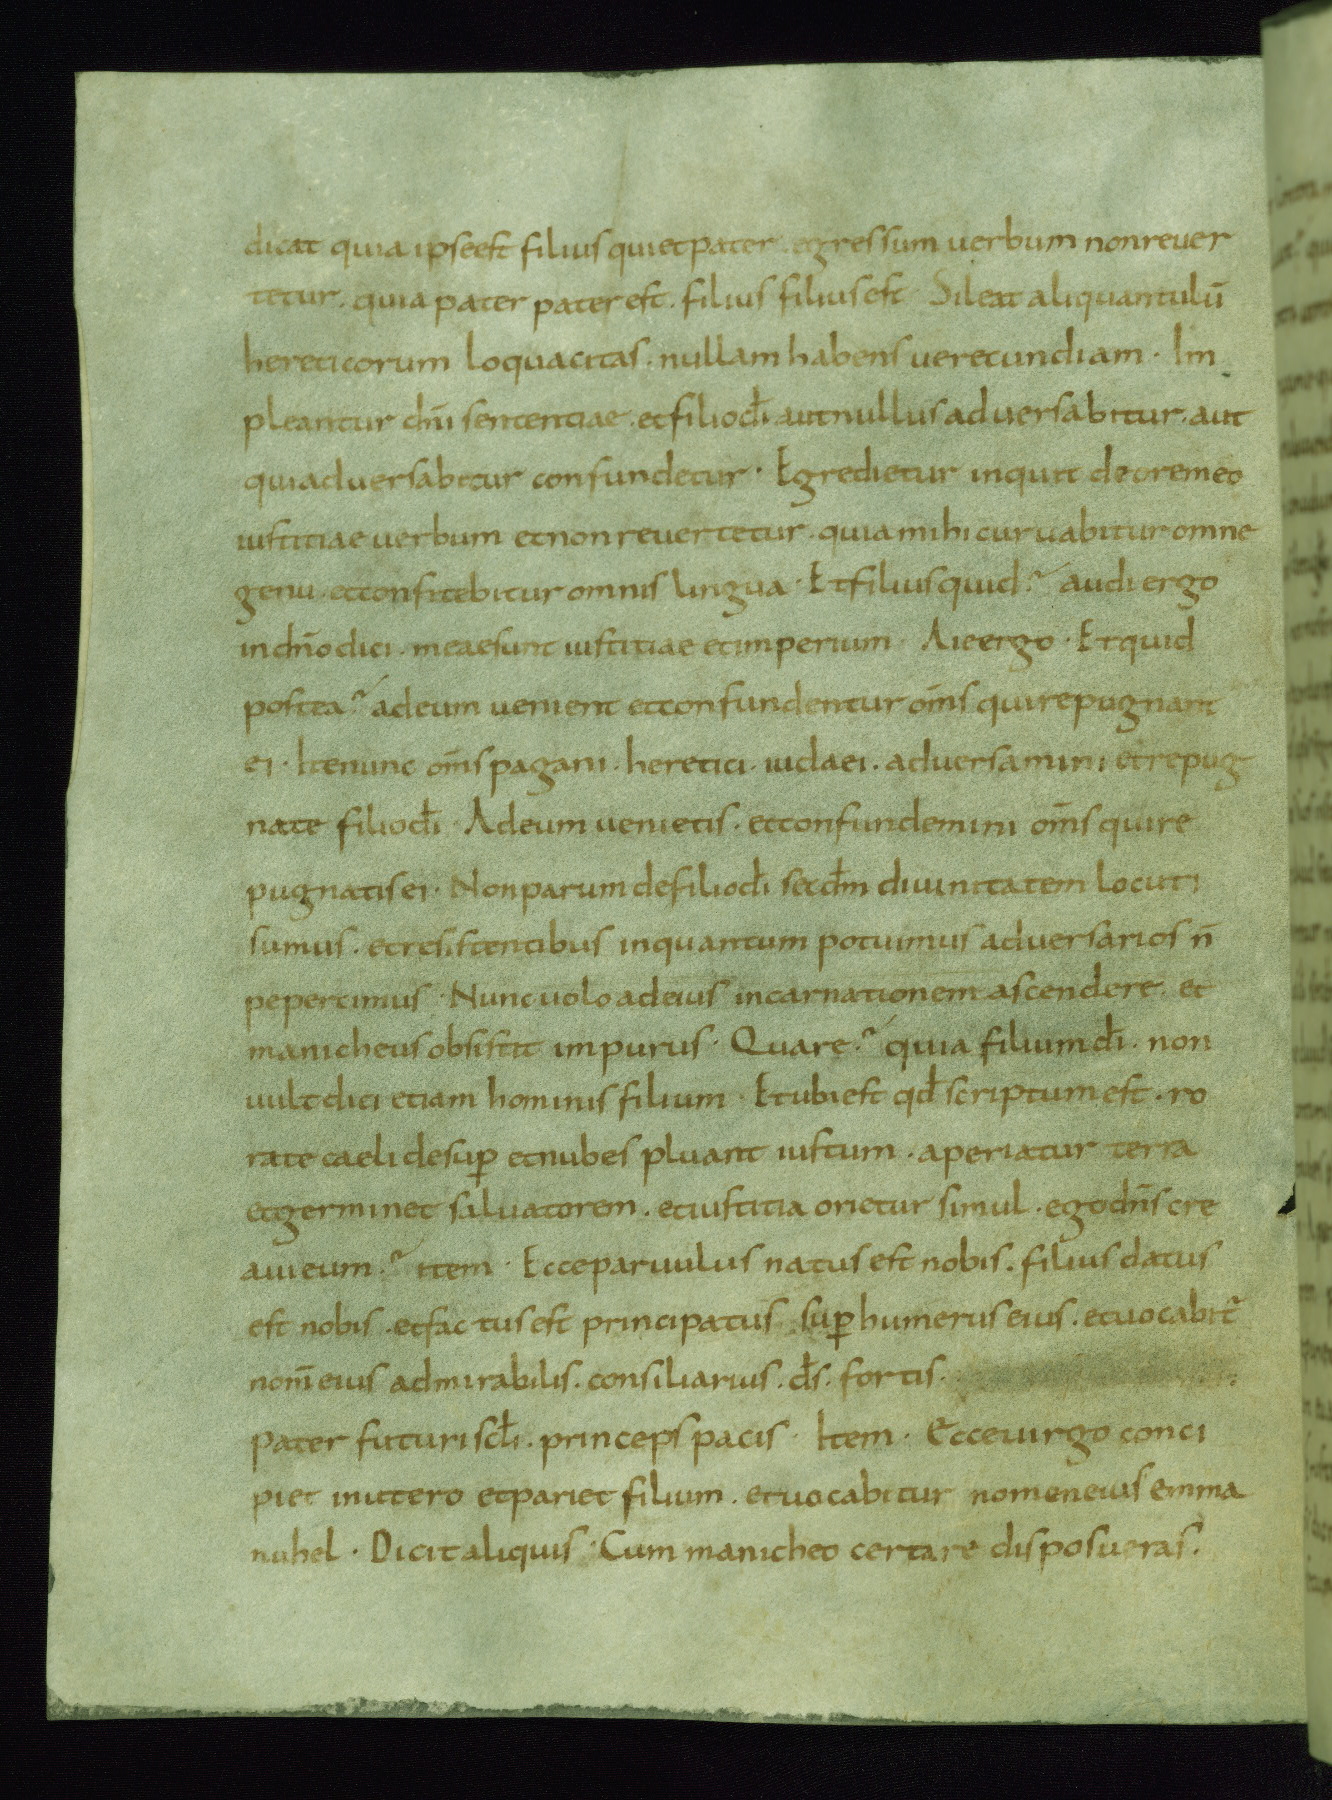 dicat quia ipse est filius qui et pater. egressum uerbum non reuer
tetur. quia pater pater est. filius filius est. Sileat aliquantulū
hereticorum loquacitas. nullam habens uerecundiam. Im
pleantur dn̄i sententiae. et filio dī aut nullus aduersabitur. aut
qui aduersabitur confundetur. Egredietur inquit de ore meo
iustitiae uerbum et non reuertetur. quia mihi curuabitur omne
genu. et confitebitur omnis lingua. Et filius quid? audi ergo
in dn̄o dici. meae sunt iustitiae et imperium. Ait ergo. Et quid
postea? ad eum uenient et confundentur om̄s qui repugnant
ei. Ite nunc om̄s pagani. heretici. iudaei. aduersamini et repug
nate filio dī. Ad eum uenietis. et confundemini om̄s qui re
pugnatis ei. Non parum de filio dī secdm̄ diuinitatem locuti
sumus. et resistentibus inquantum potuimus aduersarios n̄
pepercimus. Nunc uolo ad eius incarnationem ascendere. et
manicheus obsistit impurus. Quare? quia filium dī. non
uult dici etiam hominis filium. Et ubi est qđ scriptum est. ro
rate caeli desup̄ et nubes pluant iustum. aperiatur terra
et germinet saluatorem. et iustitia orietur simul. ego dn̄s cre
aui eum? item. Ecce paruulus natus est nobis. filius datus
est nobis. et factus est principatus sup̄ humerus eius. et uocabit̄
nom̄ eius admirabilis. consiliarius. ds̄. fortis.
pater futuri scl̄i. princeps pacis. Item. Ecce uirgo conci
piet in utero et pariet filium. et uocabitur nomen eius emma
nuhel. Dicit aliquis. Cum manicheo certare disposueras.